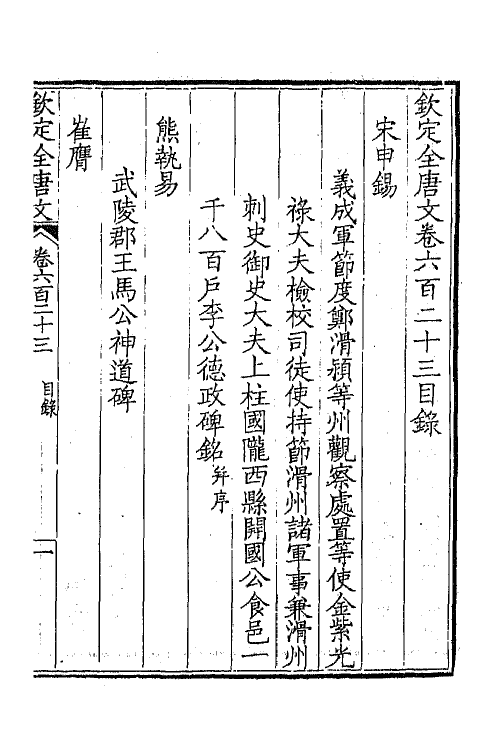 欽定全唐文卷六百二十三目錄
宋申錫
義成軍節度鄭滑潁等州觀察處置等使金紫光
祿大夫檢校司徒使持節滑州諸軍事兼滑州
刺史御史大夫上柱國隴西縣開國公食邑一
千八百戶李公德政碑銘并序
熊執易
武陵郡王馬公神道碑
崔膺
欽定全唐文 卷六百二十三 目錄 一